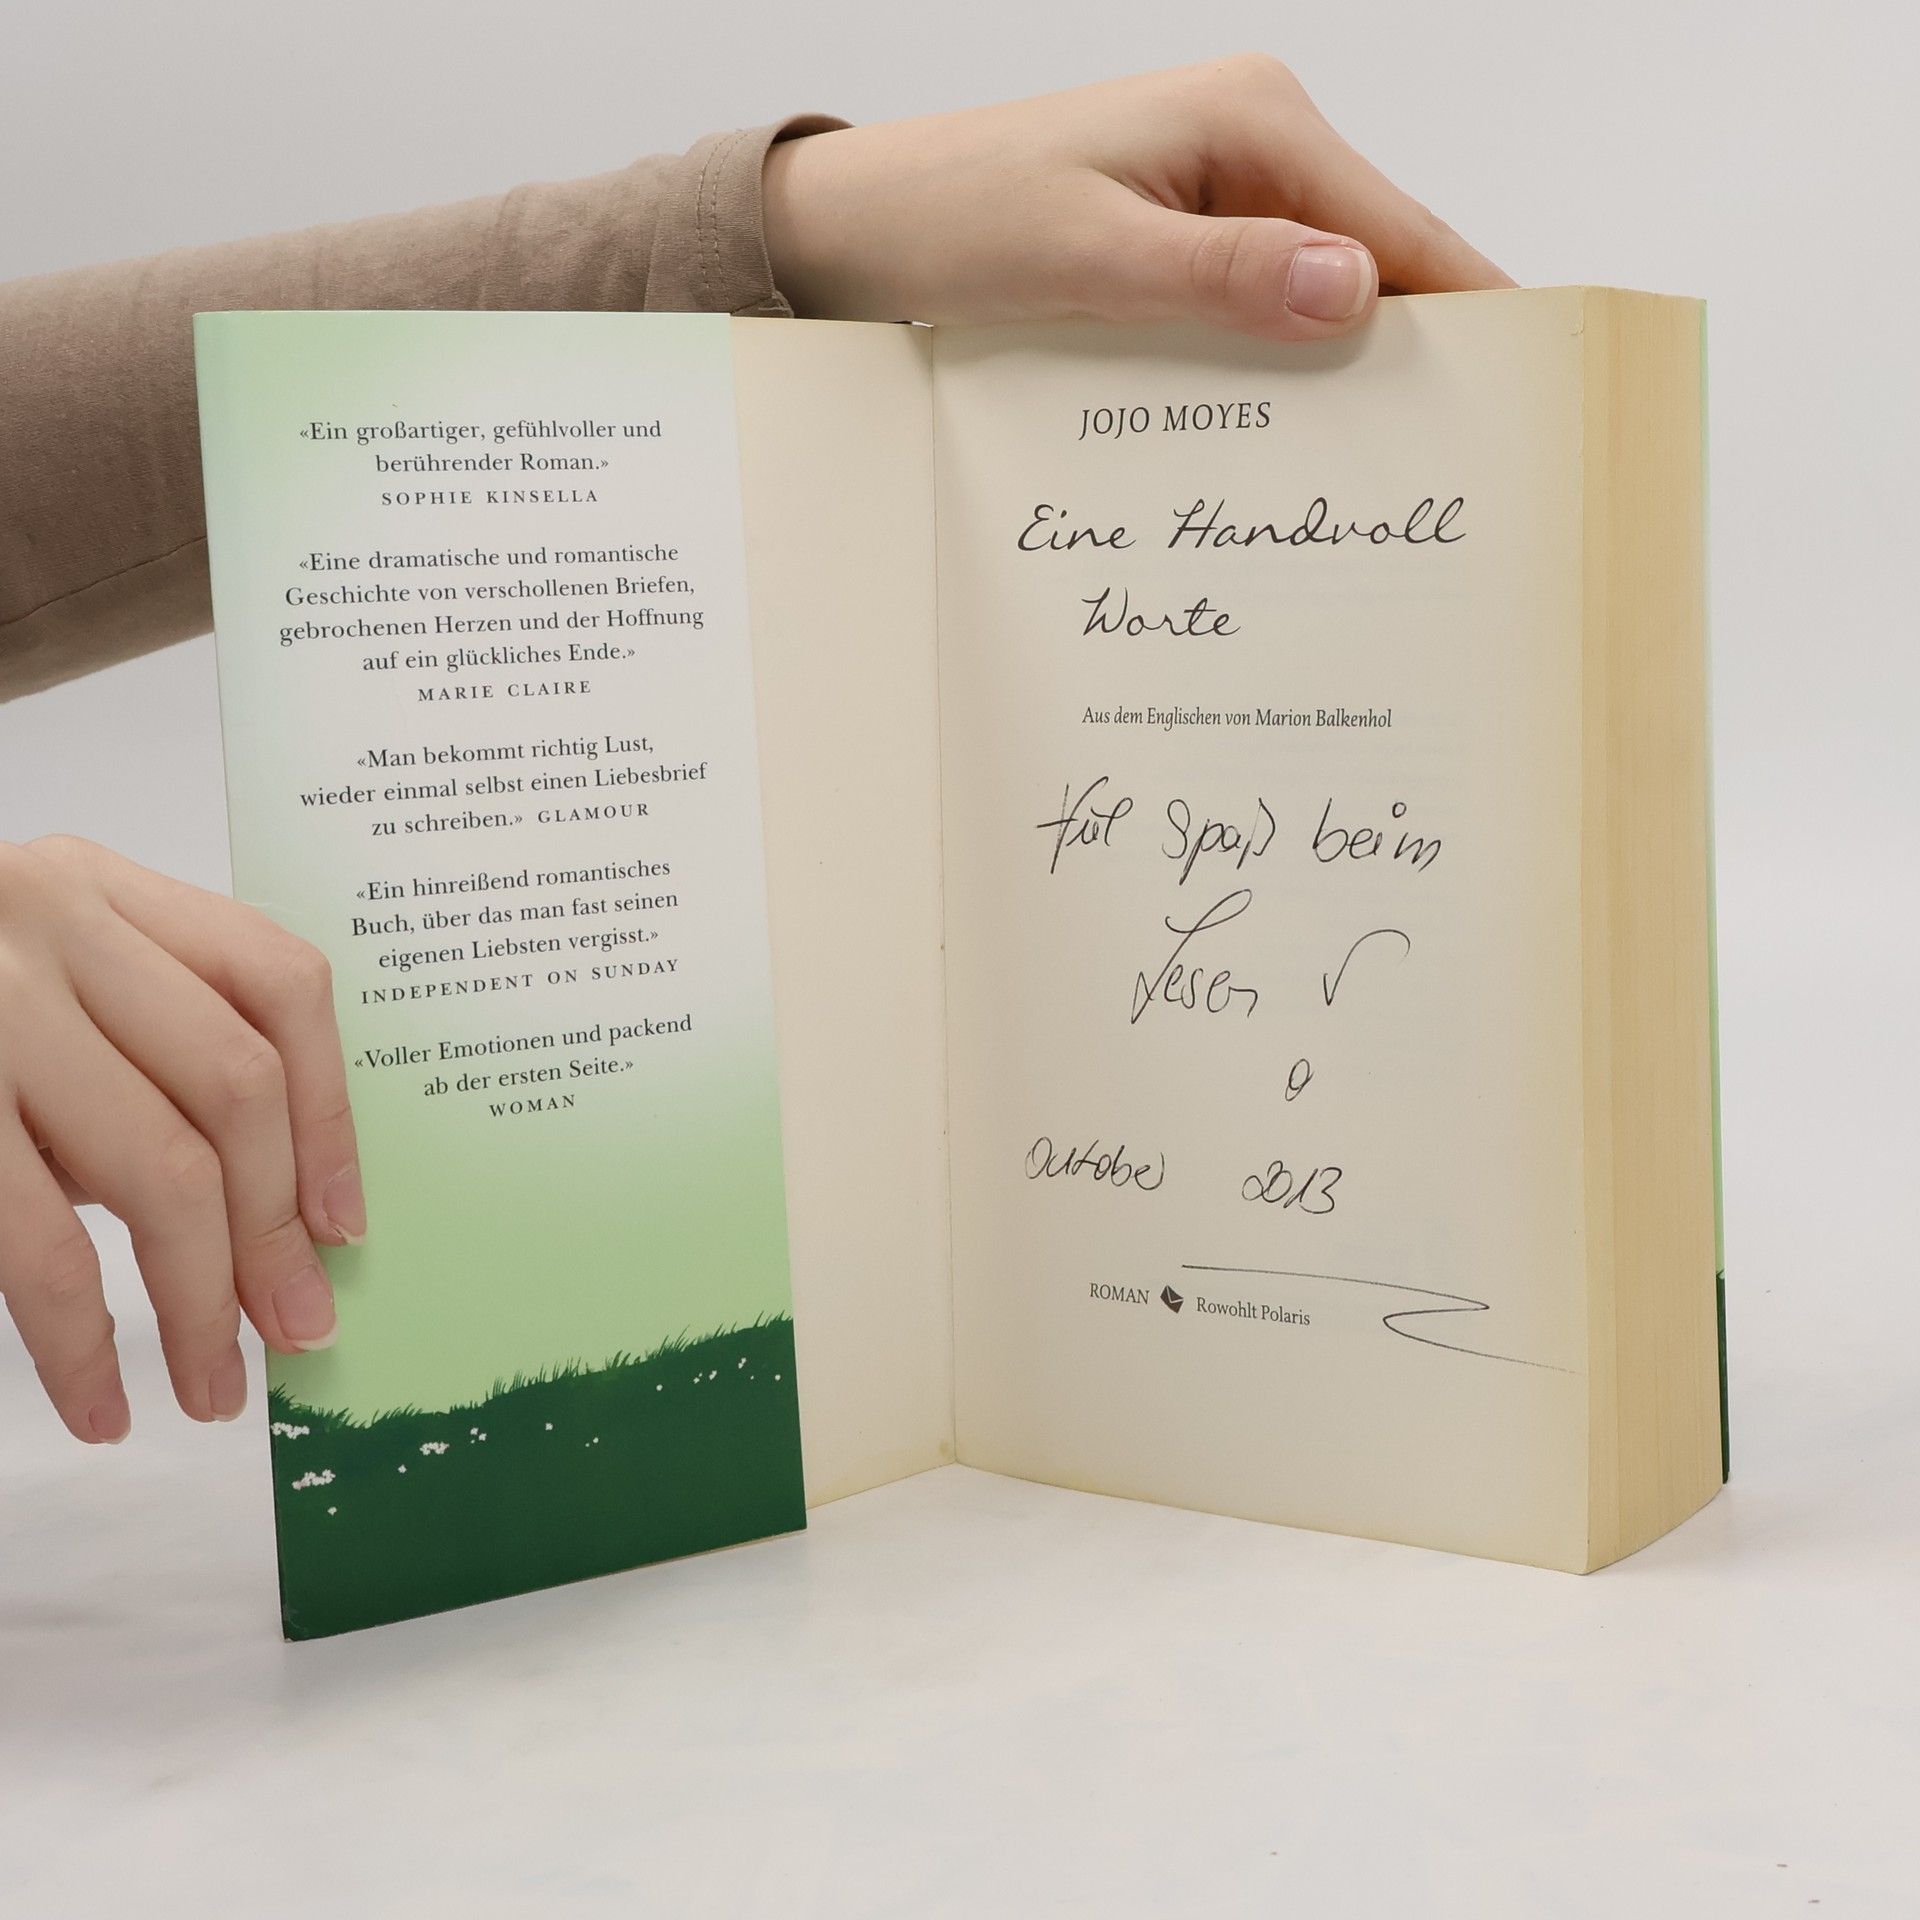 «Ein großartiger, gefühlvoller und
berührender Roman.»
SOPHIE KINSELLA
«Eine dramatische und romantische
Geschichte von verschollenen Briefen,
gebrochenen Herzen und der Hoffnung
auf ein glückliches Ende.»
MARIE CLAIRE
«Man bekommt richtig Lust,
wieder einmal selbst einen Liebesbrief
zu schreiben.» GLAMOUR
«Ein hinreißend romantisches
Buch, über das man fast seinen
eigenen Liebsten vergisst.»
INDEPENDENT ON SUNDAY
«Voller Emotionen und packend
ab der ersten Seite.»
WOMAN
JOJO MOYES
Eine Handvoll
Worte
Aus dem Englischen von Marion Balkenhol
Viel Spaß beim
Lesen
Oktober 2013
ROMAN Rowohlt Polaris